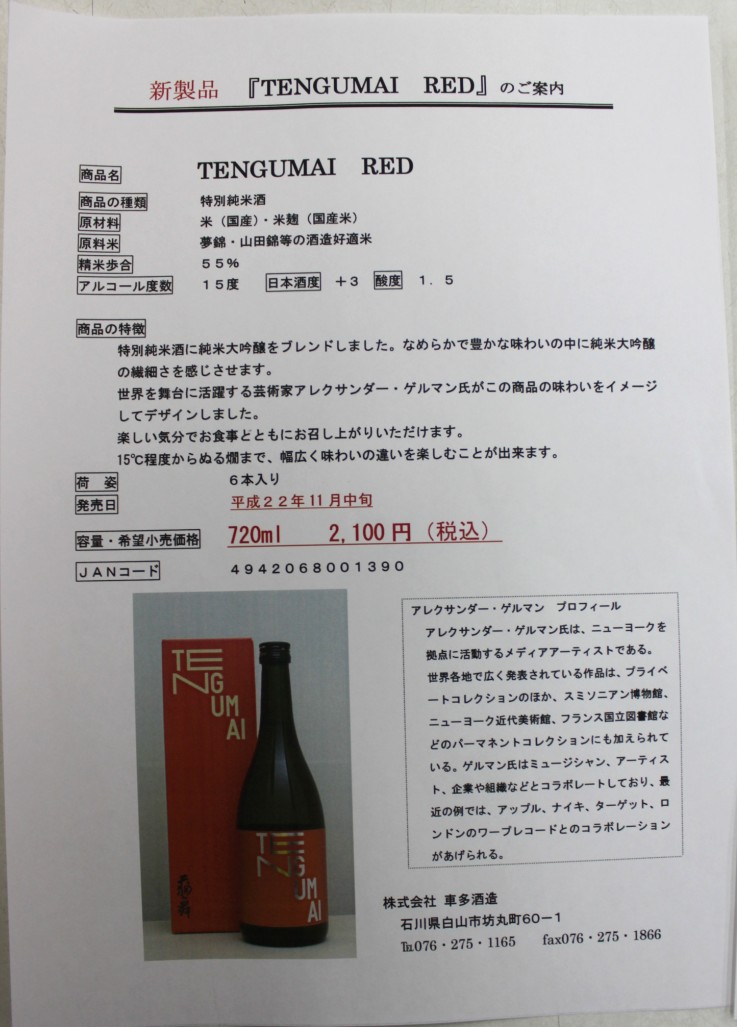 新製品 『TENGUMAI RED』のご案内
商品名 TENGUMAI RED
商品の種類 特別純米酒
原材料 米（国産）・米麹（国産米）
原料米 夢錦・山田錦等の酒造好適米
精米歩合 ５５％
アルコール度数 １５度 日本酒度 ＋３ 酸度 １．５
商品の特徴
特別純米酒に純米大吟醸をブレンドしました。なめらかで豊かな味わいの中に純米大吟醸
の繊細さを感じさせます。
世界を舞台に活躍する芸術家アレクサンダー・ゲルマン氏がこの商品の味わいをイメージ
してデザインしました。
楽しい気分でお食事どともにお召し上がりいただけます。
15℃程度からぬる燗まで、幅広く味わいの違いを楽しむことが出来ます。
荷 姿 ６本入り
発売日 平成２２年11月中旬
容量・希望小売価格 720ml 2,100円（税込）
ＪＡＮコード ４９４２０６８００１３９０
TE
NG
UM
AI
天狗舞
TE
NG
UM
AI
アレクサンダー・ゲルマン プロフィール
アレクサンダー・ゲルマン氏は、ニューヨークを
拠点に活動するメディアアーティストである。
世界各地で広く発表されている作品は、プライベ
ートコレクションのほか、スミソニアン博物館、
ニューヨーク近代美術館、フランス国立図書館な
どのパーマネントコレクションにも加えられて
いる。ゲルマン氏はミュージシャン、アーティス
ト、企業や組織などとコラボレートしており、最
近の例では、アップル、ナイキ、ターゲット、ロ
ンドンのワープレコードとのコラボレーション
があげられる。
株式会社 車多酒造
石川県白山市坊丸町60－1
℡076・275・1165 fax076・275・1866